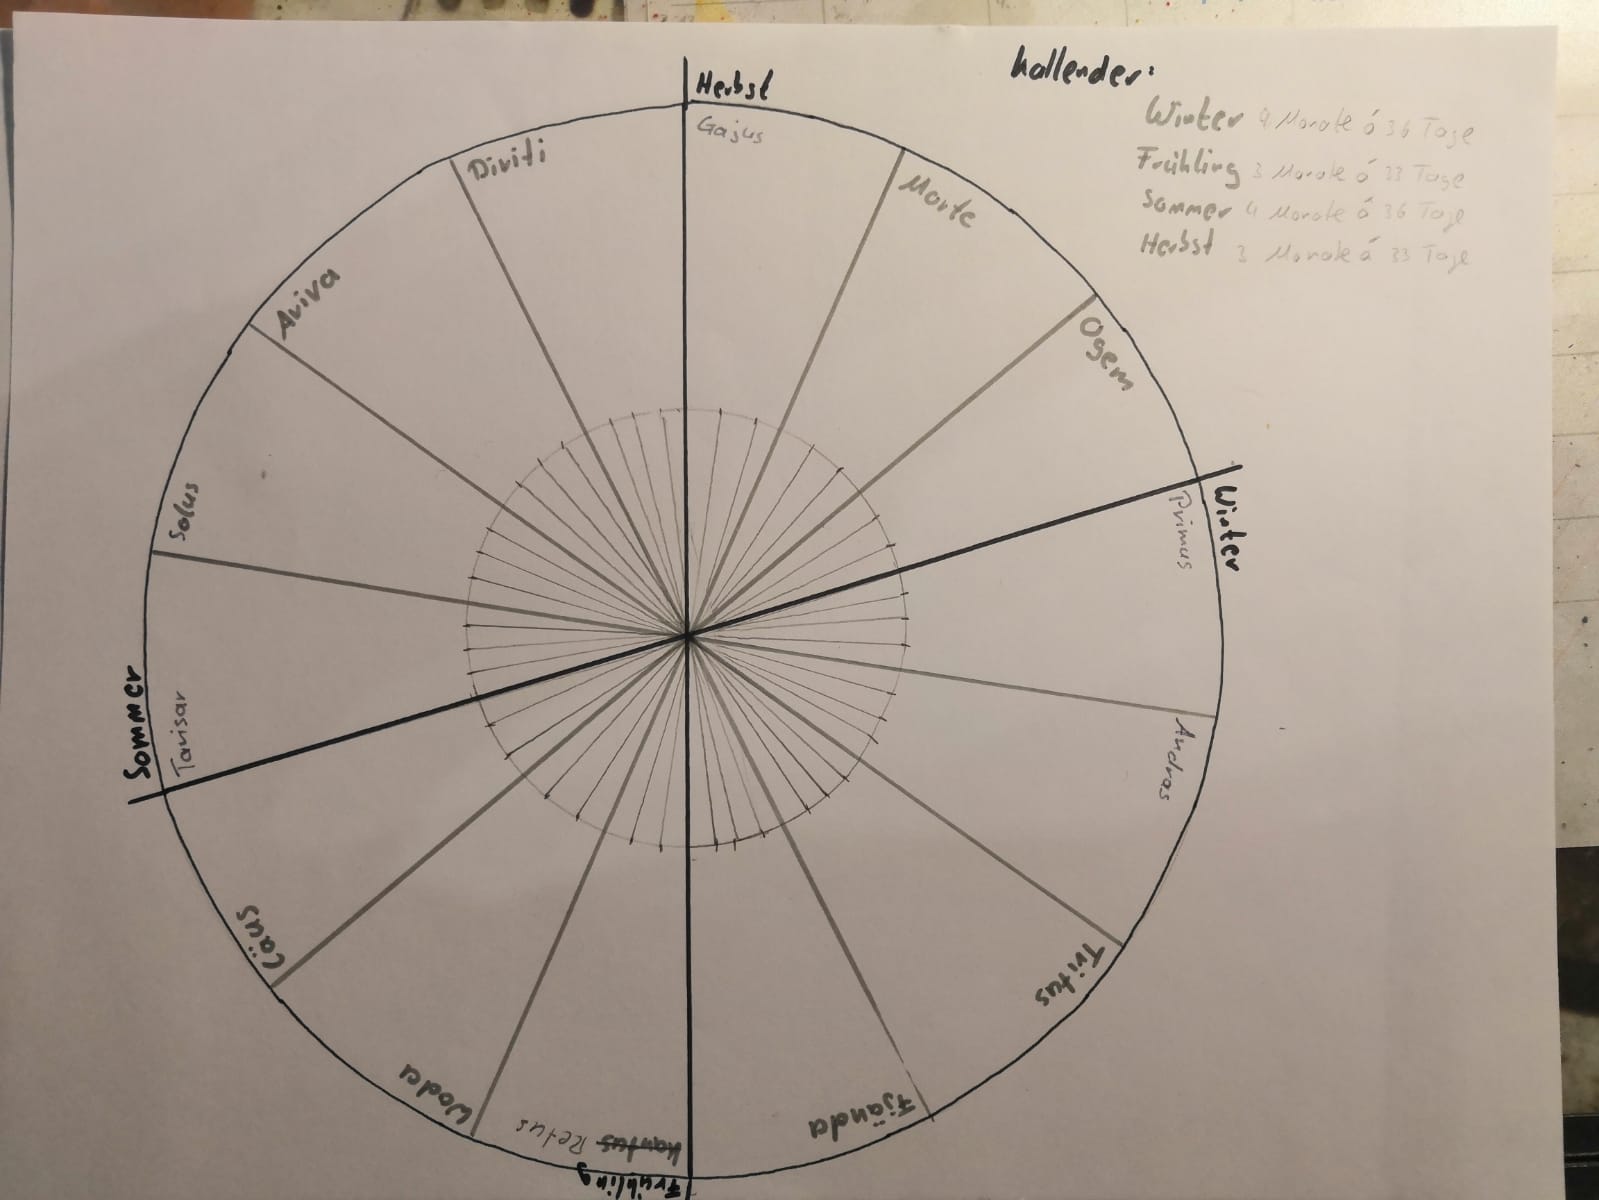 Kallender:
Winter 4 Monate á 36 Tage
Frühling 3 Monate á 33 Tage
Sommer 4 Monate á 36 Tage
Herbst 3 Monate á 33 Tage
Herbst
Gajus
Morte
Ogem
Winter
Primus
Andras
Tritus
Fjända
Frühling
Retus
Woda
Cäus
Sommer
Tarisar
Solus
Aviva
Diviti